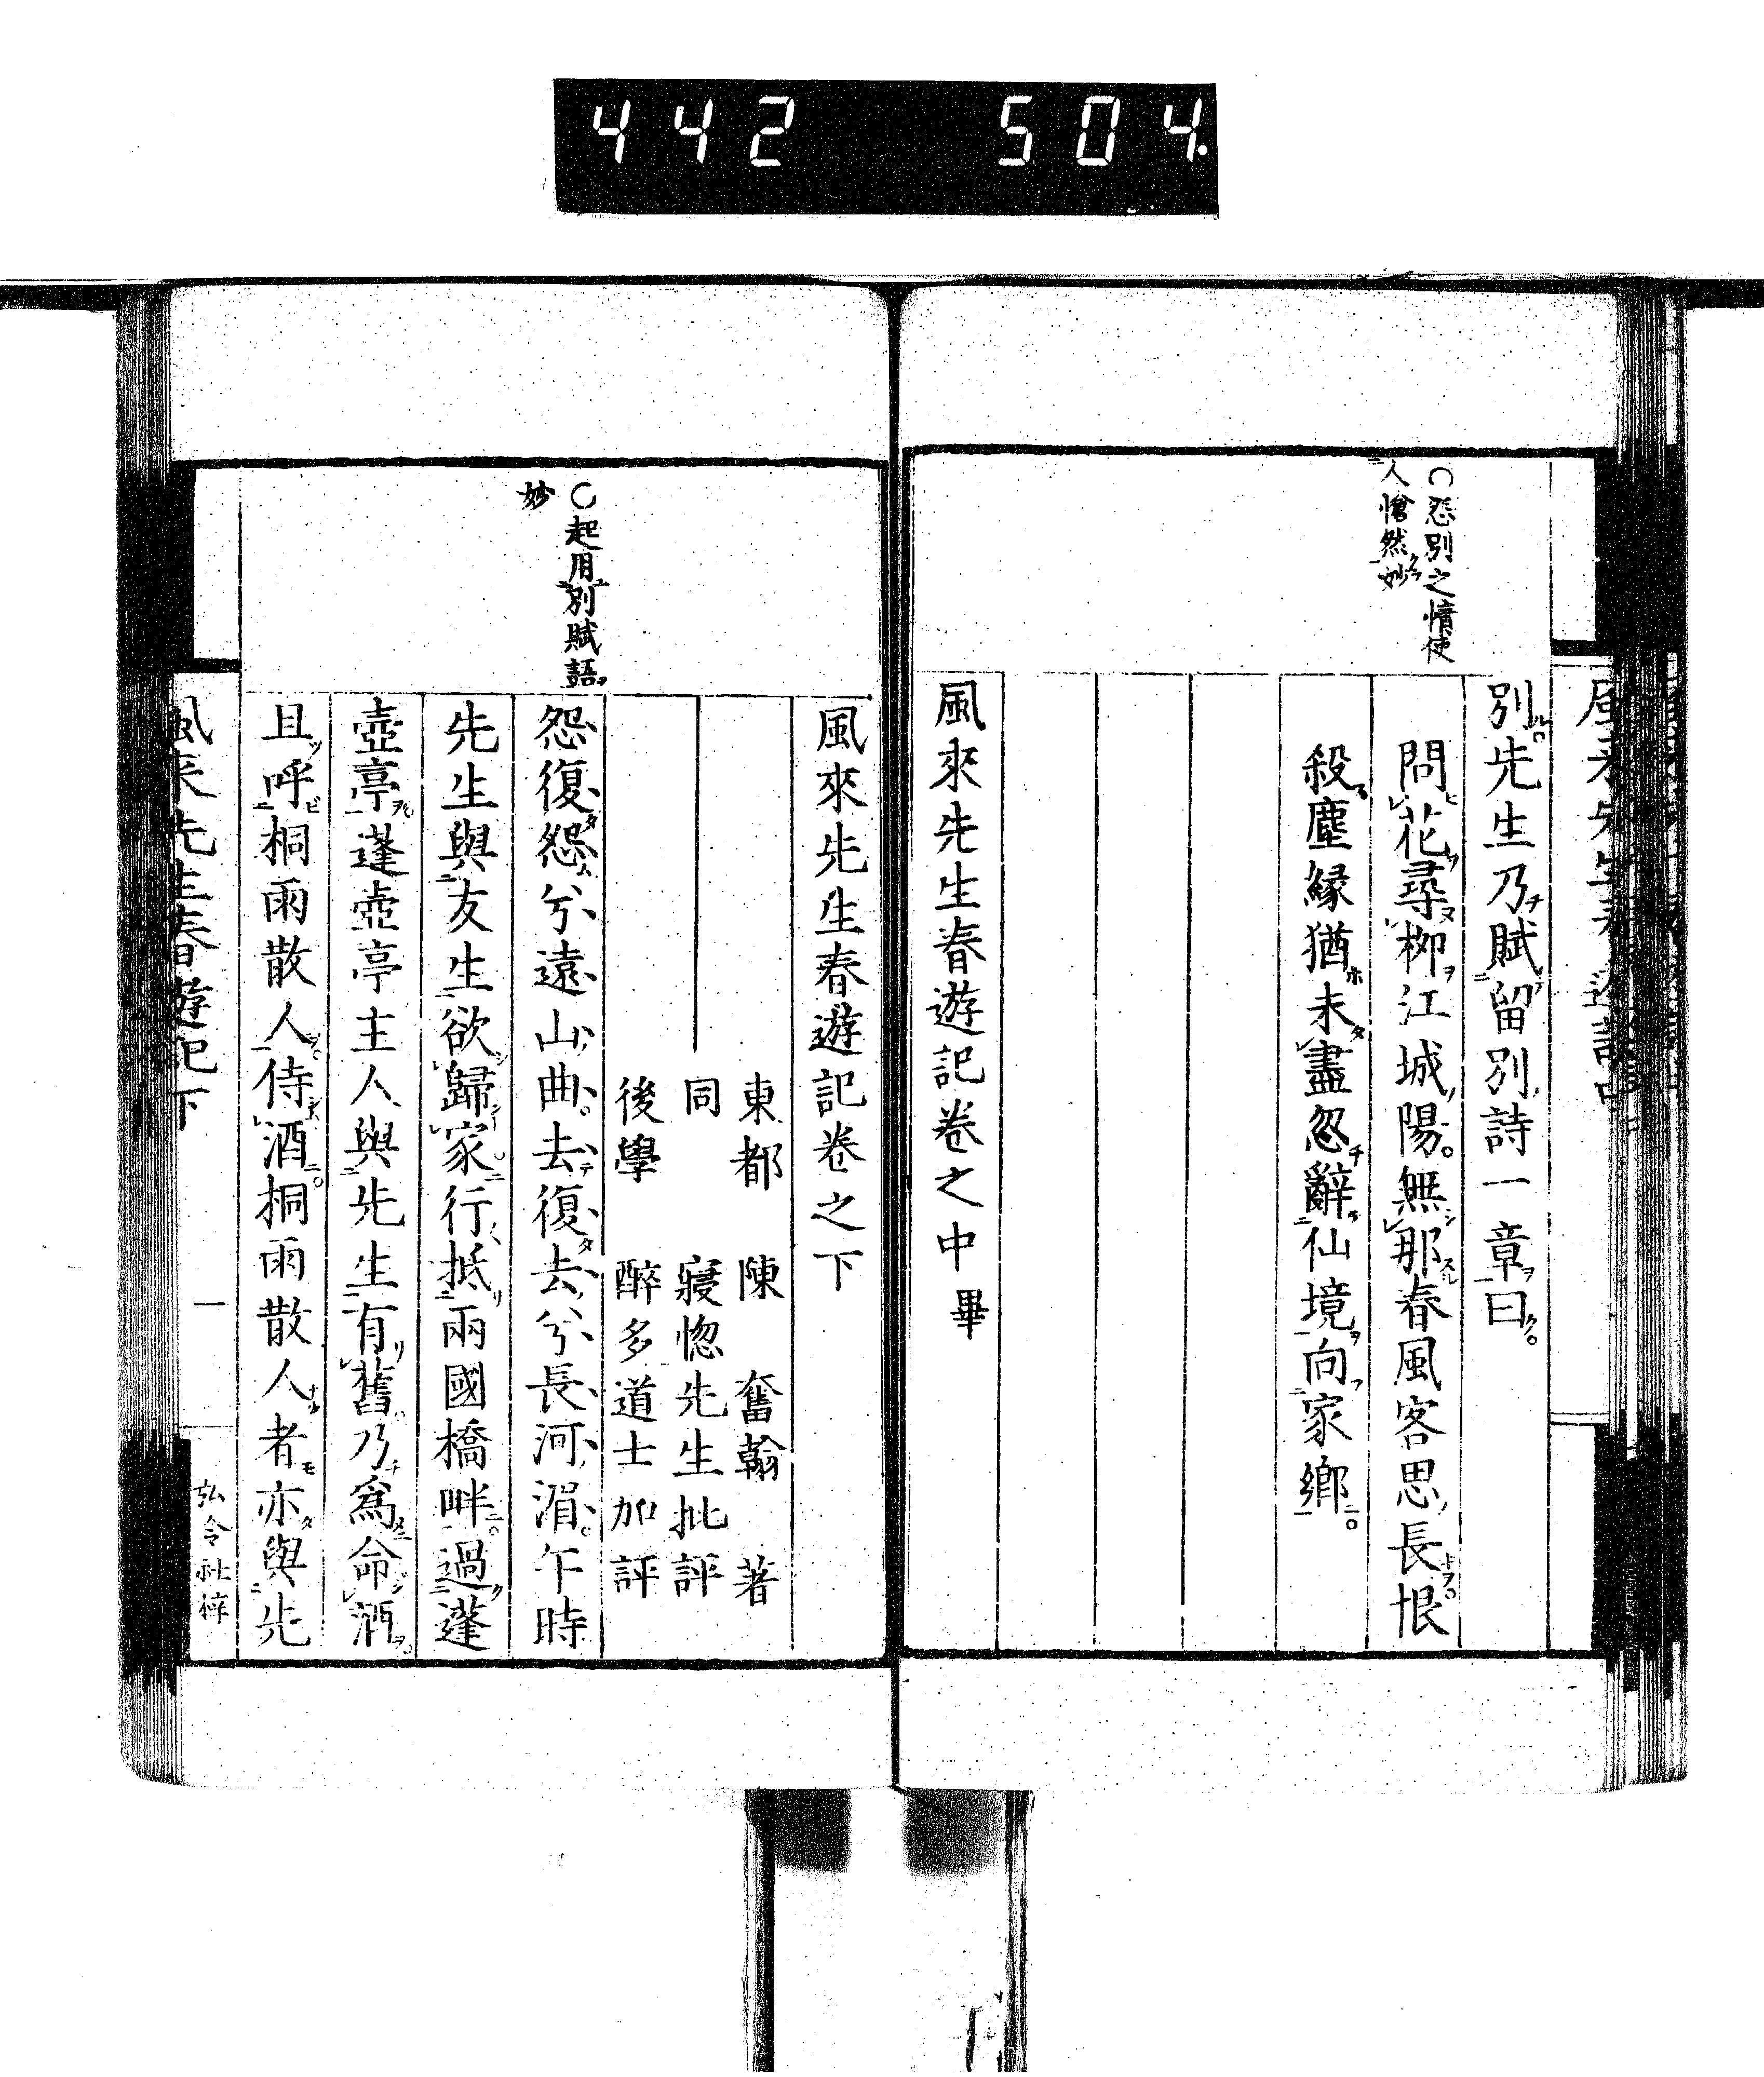 442 504.
〇怨別之情使
人愴然妙
別先生乃賦留別詩一章曰
問花尋柳江城陽無那春風客思長恨
殺塵緣猶未盡忽辭仙境向家鄉
風來先生春遊記卷之中畢
風來先生春遊記卷之下
東都 陳 奮翰 著
同 寢惚先生批評
後學 醉多道士加評
〇起用別賦語
妙
怨復怨兮遠山曲去復去兮長河湄乍時
先生與友生欲歸家行抵兩國橋畔過蓬
壺亭蓬壺亭主人與先生有舊乃為命酒
且呼桐雨散人侍酒桐雨散人者亦與先
風来先生春遊記下
一
弘令社梓